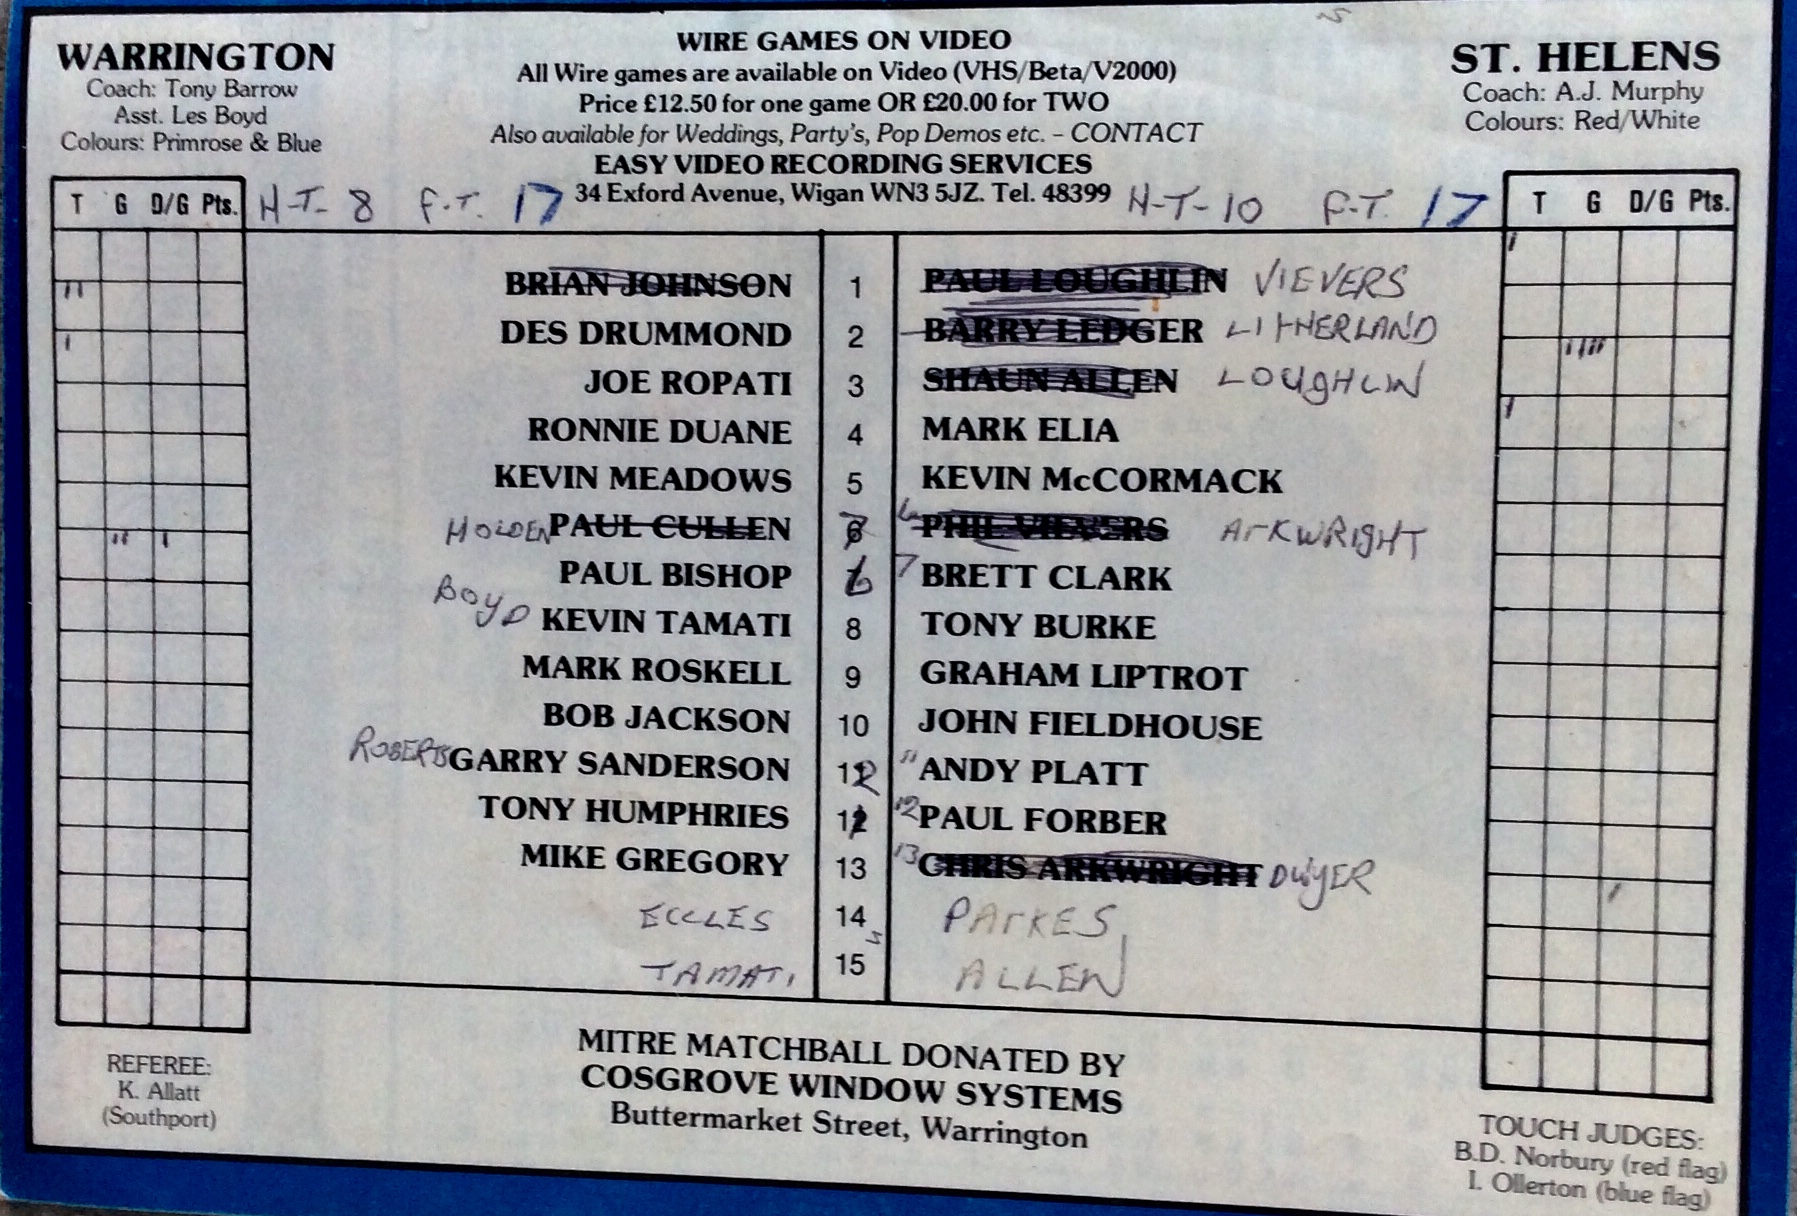 WARRINGTON
Coach: Tony Barrow
Asst. Les Boyd
Colours: Primrose & Blue
WIRE GAMES ON VIDEO
All Wire games are available on Video (VHS/Beta/V2000)
Price £12.50 for one game OR £20.00 for TWO
Also available for Weddings, Party's, Pop Demos etc. – CONTACT
EASY VIDEO RECORDING SERVICES
34 Exford Avenue, Wigan WN3 5JZ. Tel. 48399
ST. HELENS
Coach: A.J. Murphy
Colours: Red/White
T G D/G Pts.
H-T- 8 F.T. 17
H-T-10 F-T. 17
T G D/G Pts.
BRIAN JOHNSON 1 PAUL LOUGHLIN VIEVERS
DES DRUMMOND 2 BARRY LEDGER LITHERLAND
JOE ROPATI 3 SHAUN ALLEN LOUGHLIN
RONNIE DUANE 4 MARK ELIA
KEVIN MEADOWS 5 KEVIN McCORMACK
HOLDEN PAUL CULLEN 6 PHIL VIEVERS ARKWRIGHT
PAUL BISHOP 6 7 BRETT CLARK
BOYD KEVIN TAMATI 8 TONY BURKE
MARK ROSKELL 9 GRAHAM LIPTROT
BOB JACKSON 10 JOHN FIELDHOUSE
ROBERTS GARRY SANDERSON 12 11 ANDY PLATT
TONY HUMPHRIES 11 12 PAUL FORBER
MIKE GREGORY 13 13 CHRIS ARKWRIGHT DWYER
ECCLES 14 PARKES
TAMATI 15 ALLEN
REFEREE:
K. Allatt
(Southport)
MITRE MATCHBALL DONATED BY
COSGROVE WINDOW SYSTEMS
Buttermarket Street, Warrington
TOUCH JUDGES:
B.D. Norbury (red flag)
I. Ollerton (blue flag)